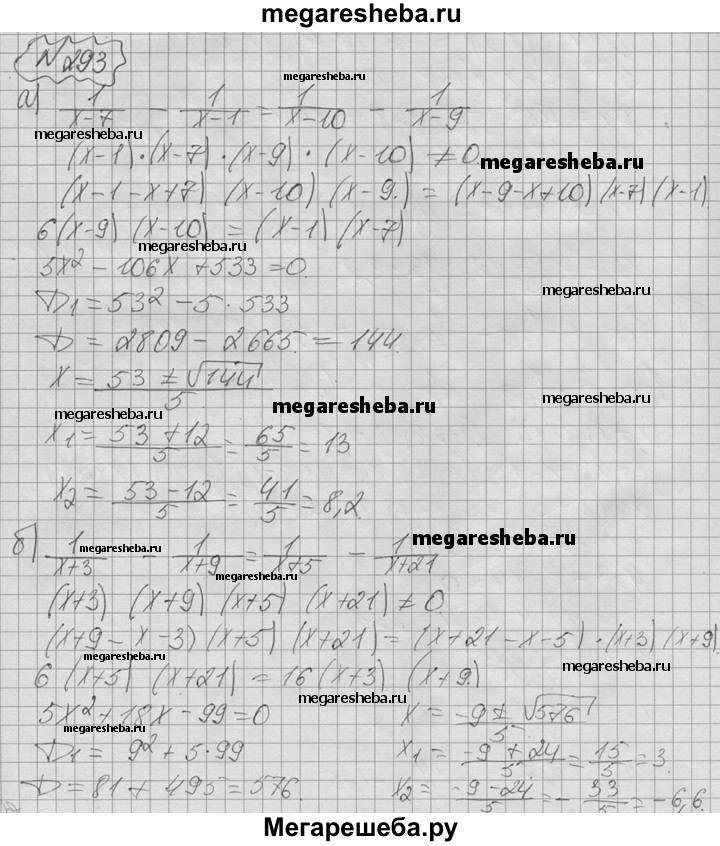 megaresheba.ru
N 293
megaresheba.ru
а) 1/(x-7) - 1/(x-1) = 1/(x-10) - 1/(x-9)
megaresheba.ru
megaresheba.ru
(x-1)·(x-7)·(x-9)·(x-10) ≠ 0.
megaresheba.ru
(x-1-x+7) (x-10) (x-9.) = (x-9-x+10) (x-7) (x-1).
6(x-9) (x-10) = (x-1) (x-7)
megaresheba.ru
5x² - 106x + 533 = 0.
megaresheba.ru
D₁ = 53² - 5·533
D = 2809 - 2665. = 144.
x = (53 ± √144)/5.
megaresheba.ru
megaresheba.ru
megaresheba.ru
x₁ = (53+12)/5 = 65/5 = 13.
x₂ = (53-12)/5 = 41/5 = 8,2.
б) 1/(x+3) - 1/(x+9) = 1/(x+5) - 1/(x+21)
megaresheba.ru
megaresheba.ru
megaresheba.ru
(x+3) (x+9) (x+5) (x+21) ≠ 0.
(x+9-x-3) (x+5) (x+21) = (x+21-x-5)·(x+3) (x+9).
megaresheba.ru
megaresheba.ru
6 (x+5) (x+21) = 16 (x+3) (x+9.)
megaresheba.ru
5x² + 18x - 99 = 0
x = (-9 ± √576)/5
megaresheba.ru
D₁ = 9² + 5·99
x₁ = (-9+24)/5 = 15/5 = 3.
D = 81 + 495 = 576.
x₂ = (-9-24)/5 = -33/5 = -6,6.
Мегарешеба.ру